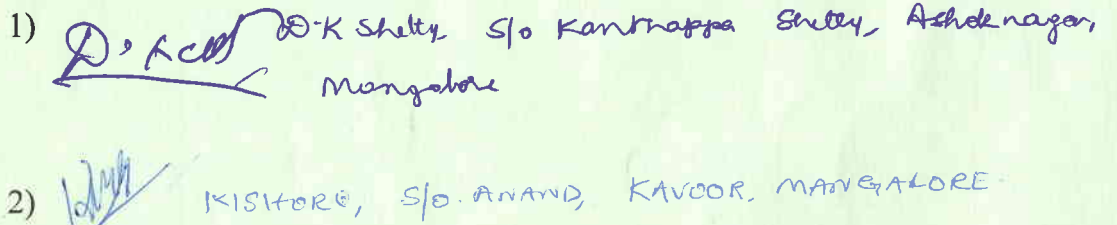 1) D.K Shetty, S/o Kanthappa Shetty, Ashoknagar,
Mangalore
2) KISHORE, S/O. ANAND, KAVOOR, MANGALORE